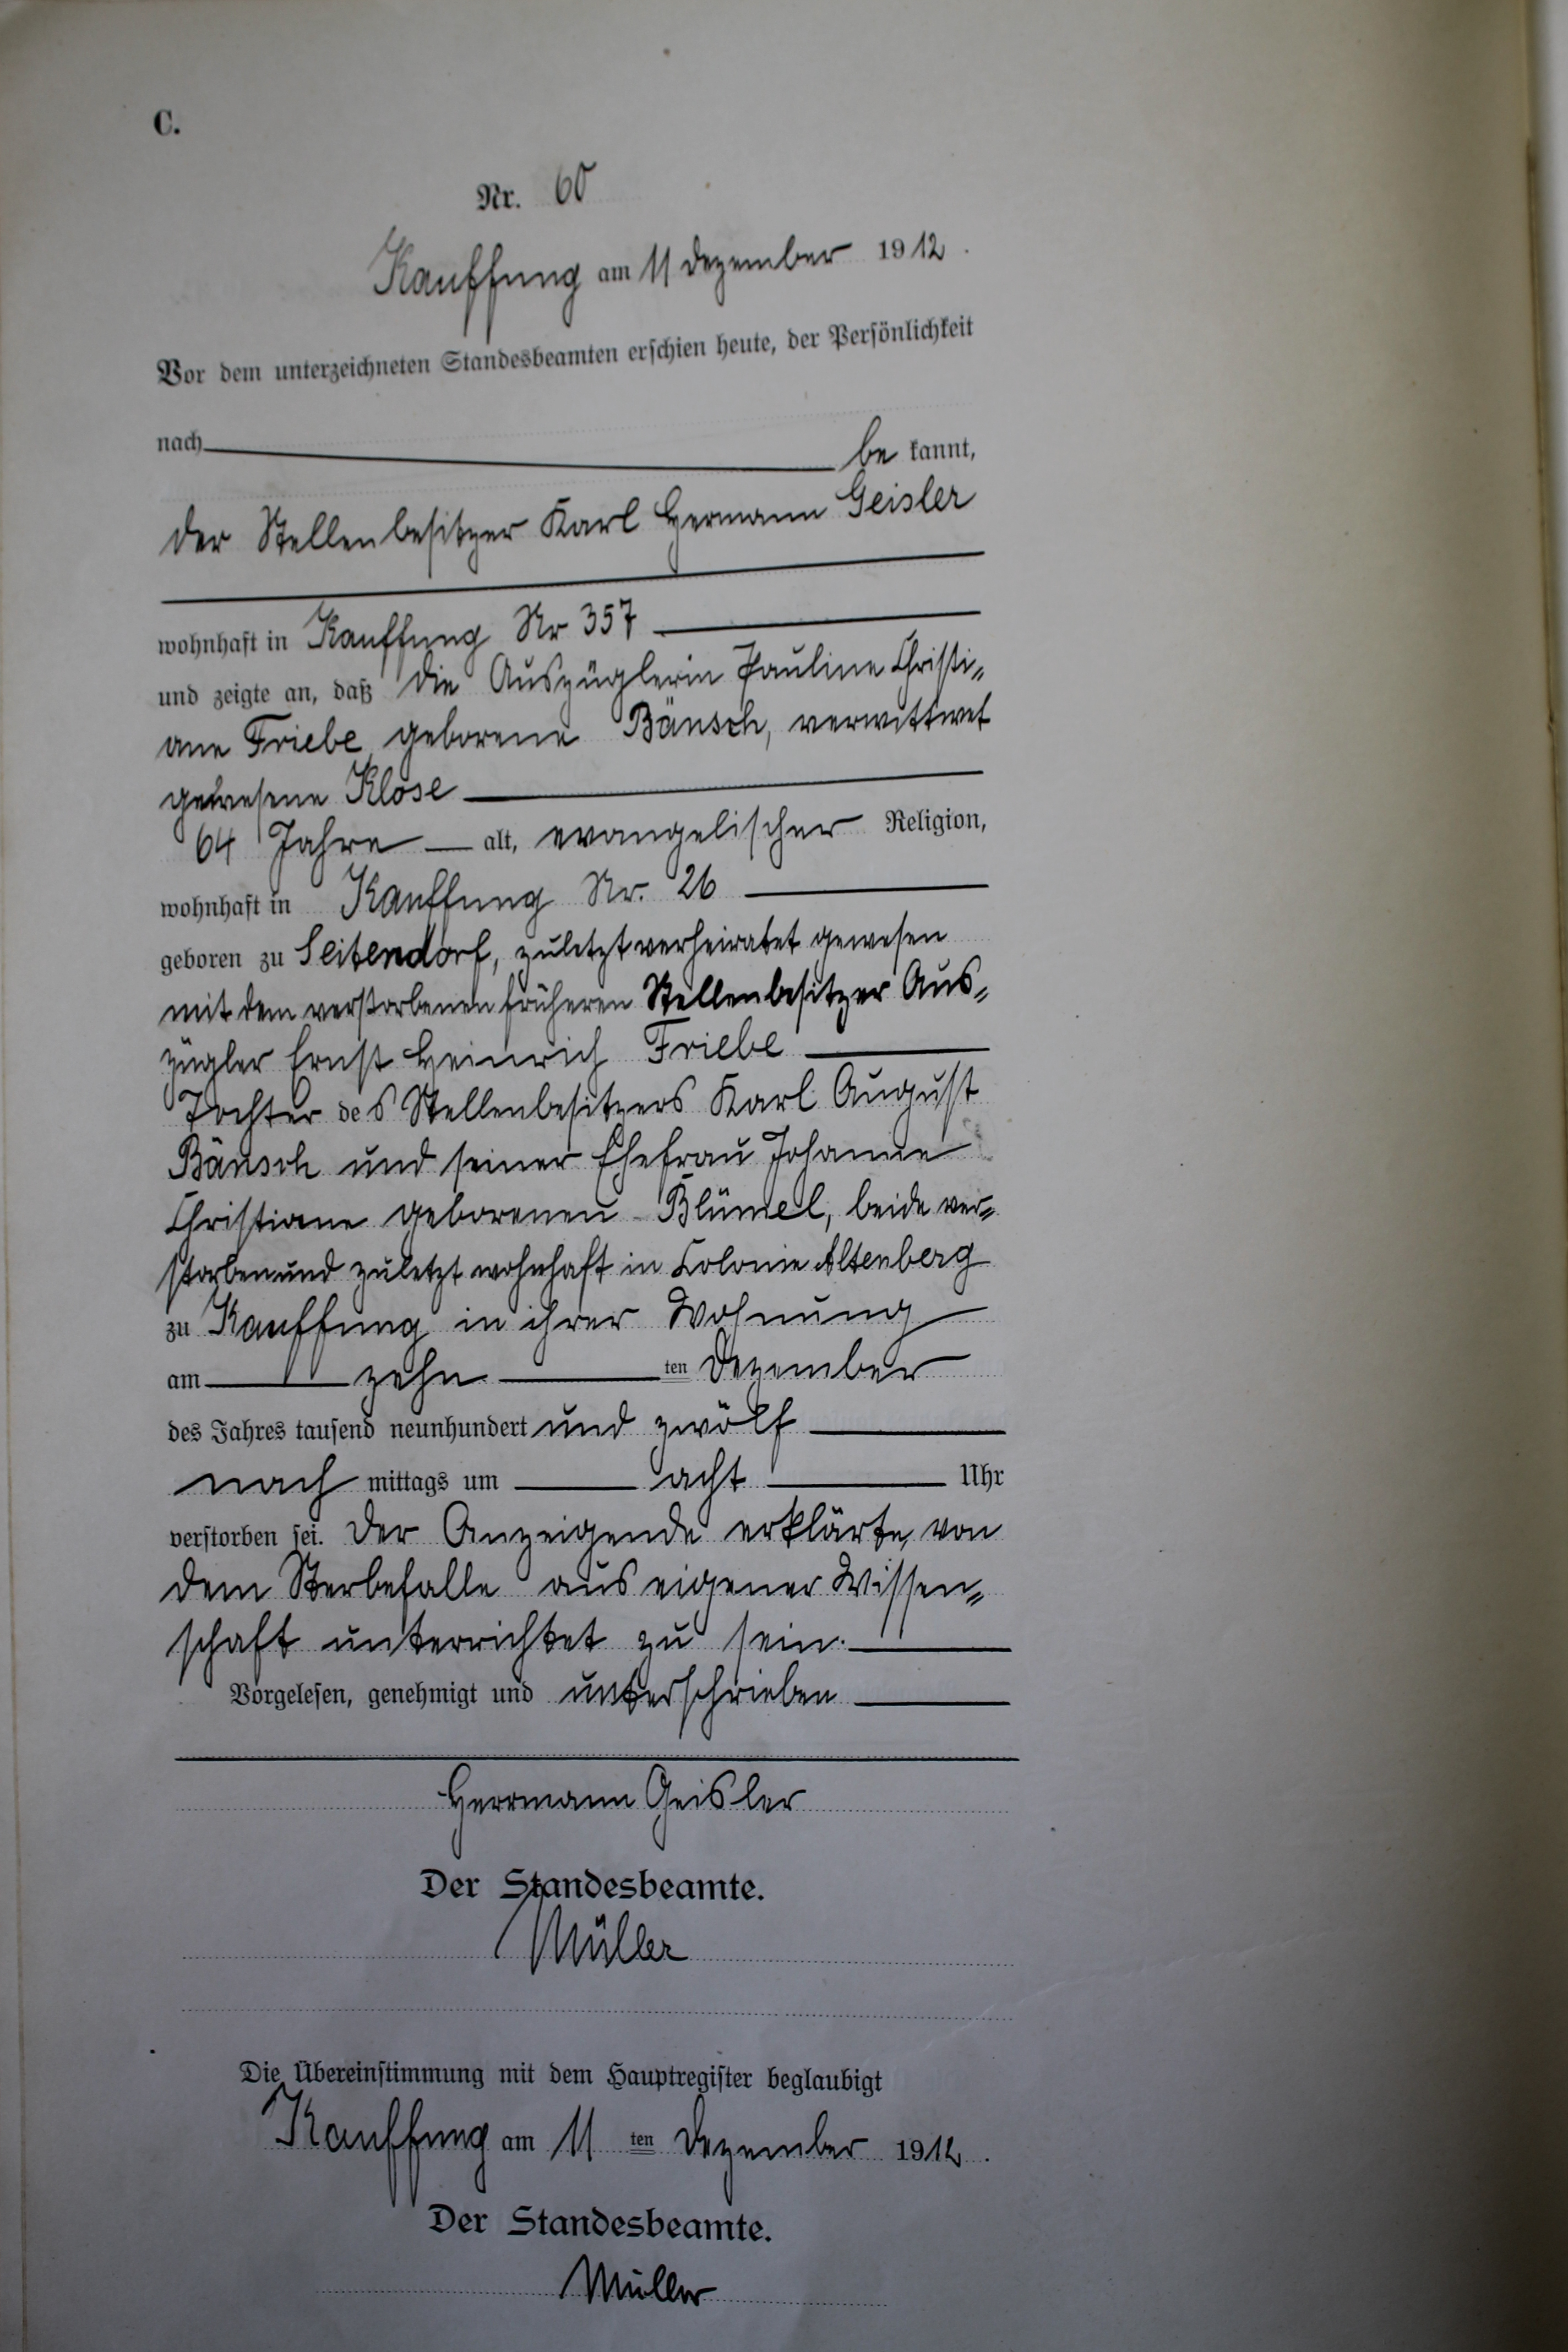 C.
Nr. 60
Kauffung am 11 Dezember 1912.
Vor dem unterzeichneten Standesbeamten erschien heute, der Persönlichkeit
nach be kannt,
der Stellenbesitzer Karl Hermann Geisler
wohnhaft in Kauffung Nr 357
und zeigte an, daß die Auszüglerin Pauline Christi„
ane Friebe, geborene Bänsch, verwittwet
gewesene Klose
64 Jahre alt, evangelischer Religion,
wohnhaft in Kauffung Nr. 26
geboren zu Seitendorf, zuletzt verheiratet gewesen
mit dem verstorbenen früheren Stellenbesitzer Aus„
zügler Ernst Heinrich Friebe
Tochter des Stellenbesitzers Karl August
Bänsch und seiner Ehefrau Johanne
Christiane geborenen Blümel, beide ver„
storben und zuletzt wohnhaft in Colonie Altenberg
zu Kauffung in ihrer Wohnung
am zehn ten Dezember
des Jahres tausend neunhundert und zwölf
nach mittags um acht Uhr
verstorben sei. Der Anzeigende erklärte, von
dem Sterbefalle aus eigener Wissen„
schaft unterrichtet zu sein.
Vorgelesen, genehmigt und unterschrieben
Herrmann Geisler
Der Standesbeamte.
Müller
Die Übereinstimmung mit dem Hauptregister beglaubigt
Kauffung am 11 ten Dezember 1912.
Der Standesbeamte.
Müller